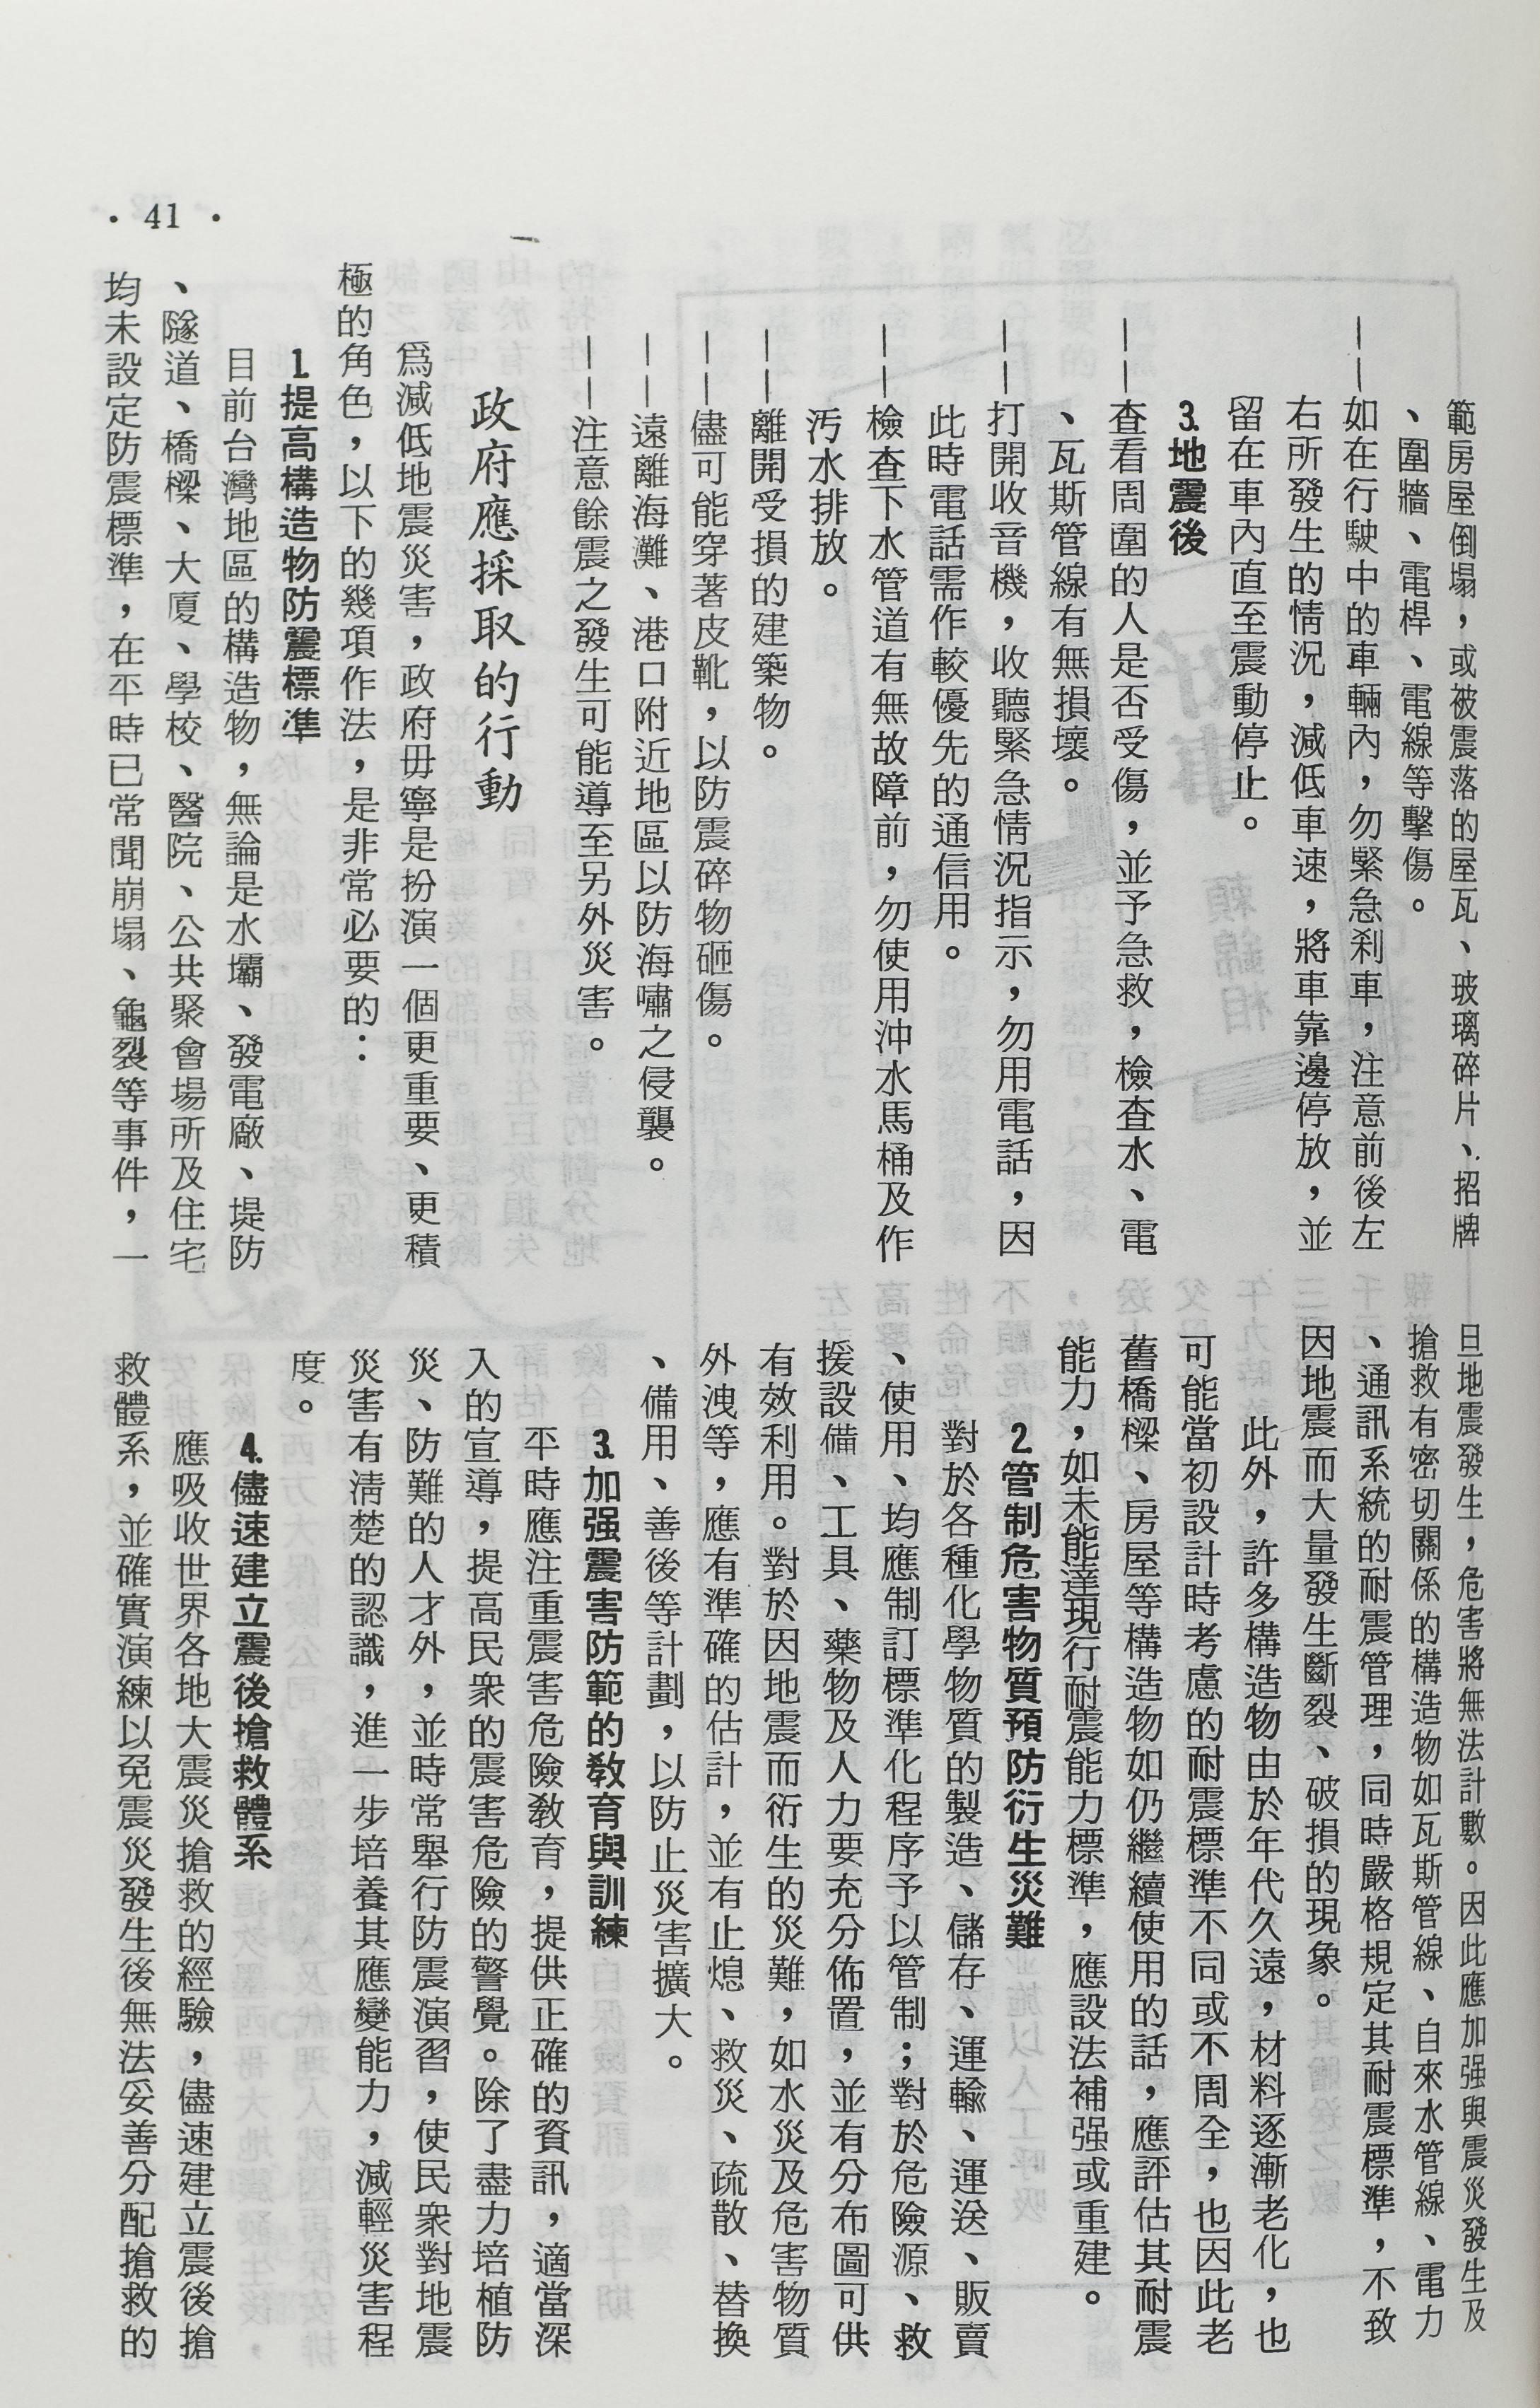 範房屋倒塌，或被震落的屋瓦、玻璃碎片、招牌
、圍牆、電桿、電線等擊傷。
——如在行駛中的車輛內，勿緊急刹車，注意前後左
右所發生的情況，減低車速，將車靠邊停放，並
留在車內直至震動停止。
3.地震後
——查看周圍的人是否受傷，並予急救，檢查水、電
、瓦斯管線有無損壞。
——打開收音機，收聽緊急情況指示，勿用電話，因
此時電話需作較優先的通信用。
——檢查下水管道有無故障前，勿使用沖水馬桶及作
污水排放。
——離開受損的建築物。
——儘可能穿著皮靴，以防震碎物砸傷。
——遠離海灘、港口附近地區以防海嘯之侵襲。
——注意餘震之發生可能導至另外災害。
政府應採取的行動
爲減低地震災害，政府毋寧是扮演一個更重要、更積
極的角色，以下的幾項作法，是非常必要的：
1.提高構造物防震標準
目前台灣地區的構造物，無論是水壩、發電廠、堤防
、隧道、橋樑、大廈、學校、醫院、公共聚會場所及住宅
均未設定防震標準，在平時已常聞崩塌、龜裂等事件，一
旦地震發生，危害將無法計數。因此應加强與震災發生及
搶救有密切關係的構造物如瓦斯管線、自來水管線、電力
、通訊系統的耐震管理，同時嚴格規定其耐震標準，不致
因地震而大量發生斷裂、破損的現象。
此外，許多構造物由於年代久遠，材料逐漸老化，也
可能當初設計時考慮的耐震標準不同或不周全，也因此老
舊橋樑、房屋等構造物如仍繼續使用的話，應評估其耐震
能力，如未能達現行耐震能力標準，應設法補强或重建。
2.管制危害物質預防衍生災難
對於各種化學物質的製造、儲存、運輸、運送、販賣
、使用、均應制訂標準化程序予以管制；對於危險源、救
援設備、工具、藥物及人力要充分佈置，並有分布圖可供
有效利用。對於因地震而衍生的災難，如水災及危害物質
外洩等，應有準確的估計，並有止熄、救災、疏散、替換
、備用、善後等計劃，以防止災害擴大。
3.加强震害防範的教育與訓練
平時應注重震害危險教育，提供正確的資訊，適當深
入的宣導，提高民衆的震害危險的警覺。除了盡力培植防
災、防難的人才外，並時常舉行防震演習，使民衆對地震
災害有清楚的認識，進一步培養其應變能力，減輕災害程
度。
4.儘速建立震後搶救體系
應吸收世界各地大震災搶救的經驗，儘速建立震後搶
救體系，並確實演練以免震災發生後無法妥善分配搶救的
• 41 •